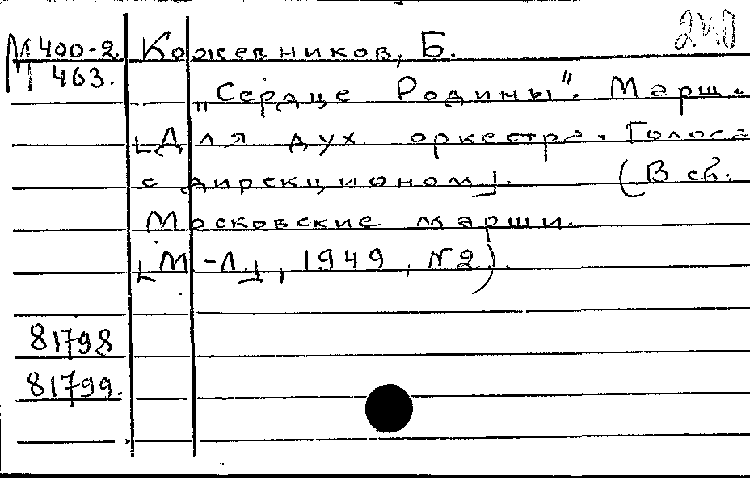 М 400-2 Кожевников, Б.
М 463. „Сердце Родины". Марш.
[Для дух. оркестра. Голоса
с дирекционом]. (В сб.
Московские марши.
[М-Л], 1949, №2).
81798
81799.